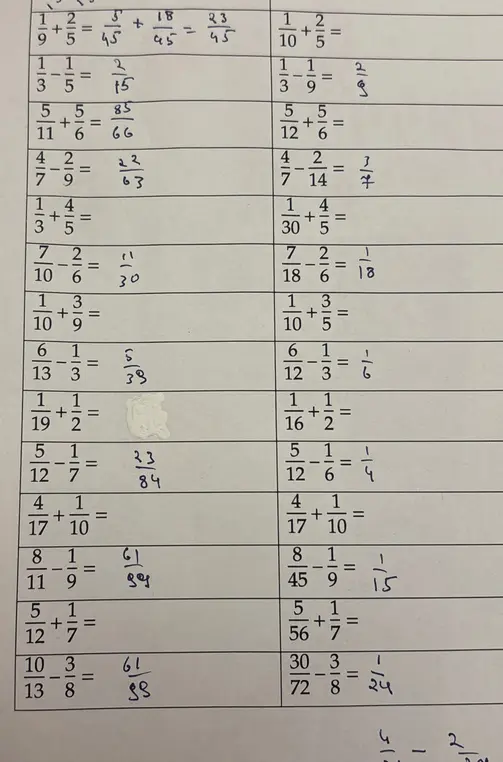 1/9 + 2/5 = 5/45 + 18/45 = 23/45
1/10 + 2/5 =
1/3 − 1/5 = 2/15
1/3 − 1/9 = 2/9
5/11 + 5/6 = 85/66
5/12 + 5/6 =
4/7 − 2/9 = 22/63
4/7 − 2/14 = 3/7
1/3 + 4/5 =
1/30 + 4/5 =
7/10 − 2/6 = 11/30
7/18 − 2/6 = 1/18
1/10 + 3/9 =
1/10 + 3/5 =
6/13 − 1/3 = 5/39
6/12 − 1/3 = 1/6
1/19 + 1/2 =
1/16 + 1/2 =
5/12 − 1/7 = 23/84
5/12 − 1/6 = 1/4
4/17 + 1/10 =
4/17 + 1/10 =
8/11 − 1/9 = 61/99
8/45 − 1/9 = 1/15
5/12 + 1/7 =
5/56 + 1/7 =
10/13 − 3/8 = 61/99
30/72 − 3/8 = 1/24